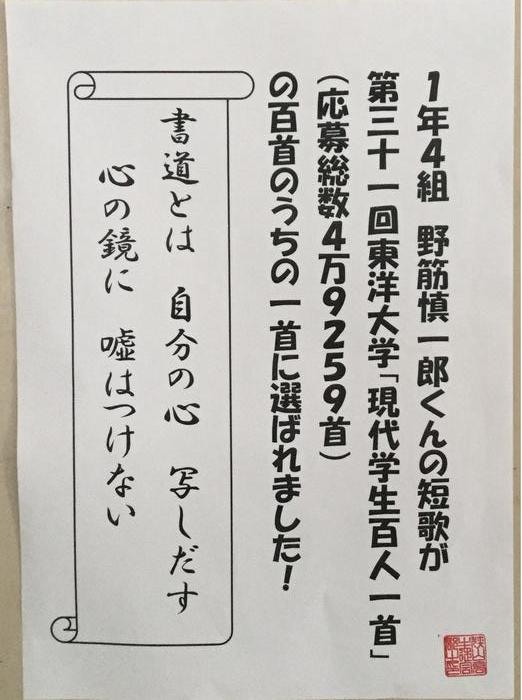 1年4組 野筋慎一郎くんの短歌が
第三十一回東洋大学「現代学生百人一首」
（応募総数4万9259首）
の百首のうちの一首に選ばれました！
書道とは 自分の心 写しだす
心の鏡に 嘘はつけない